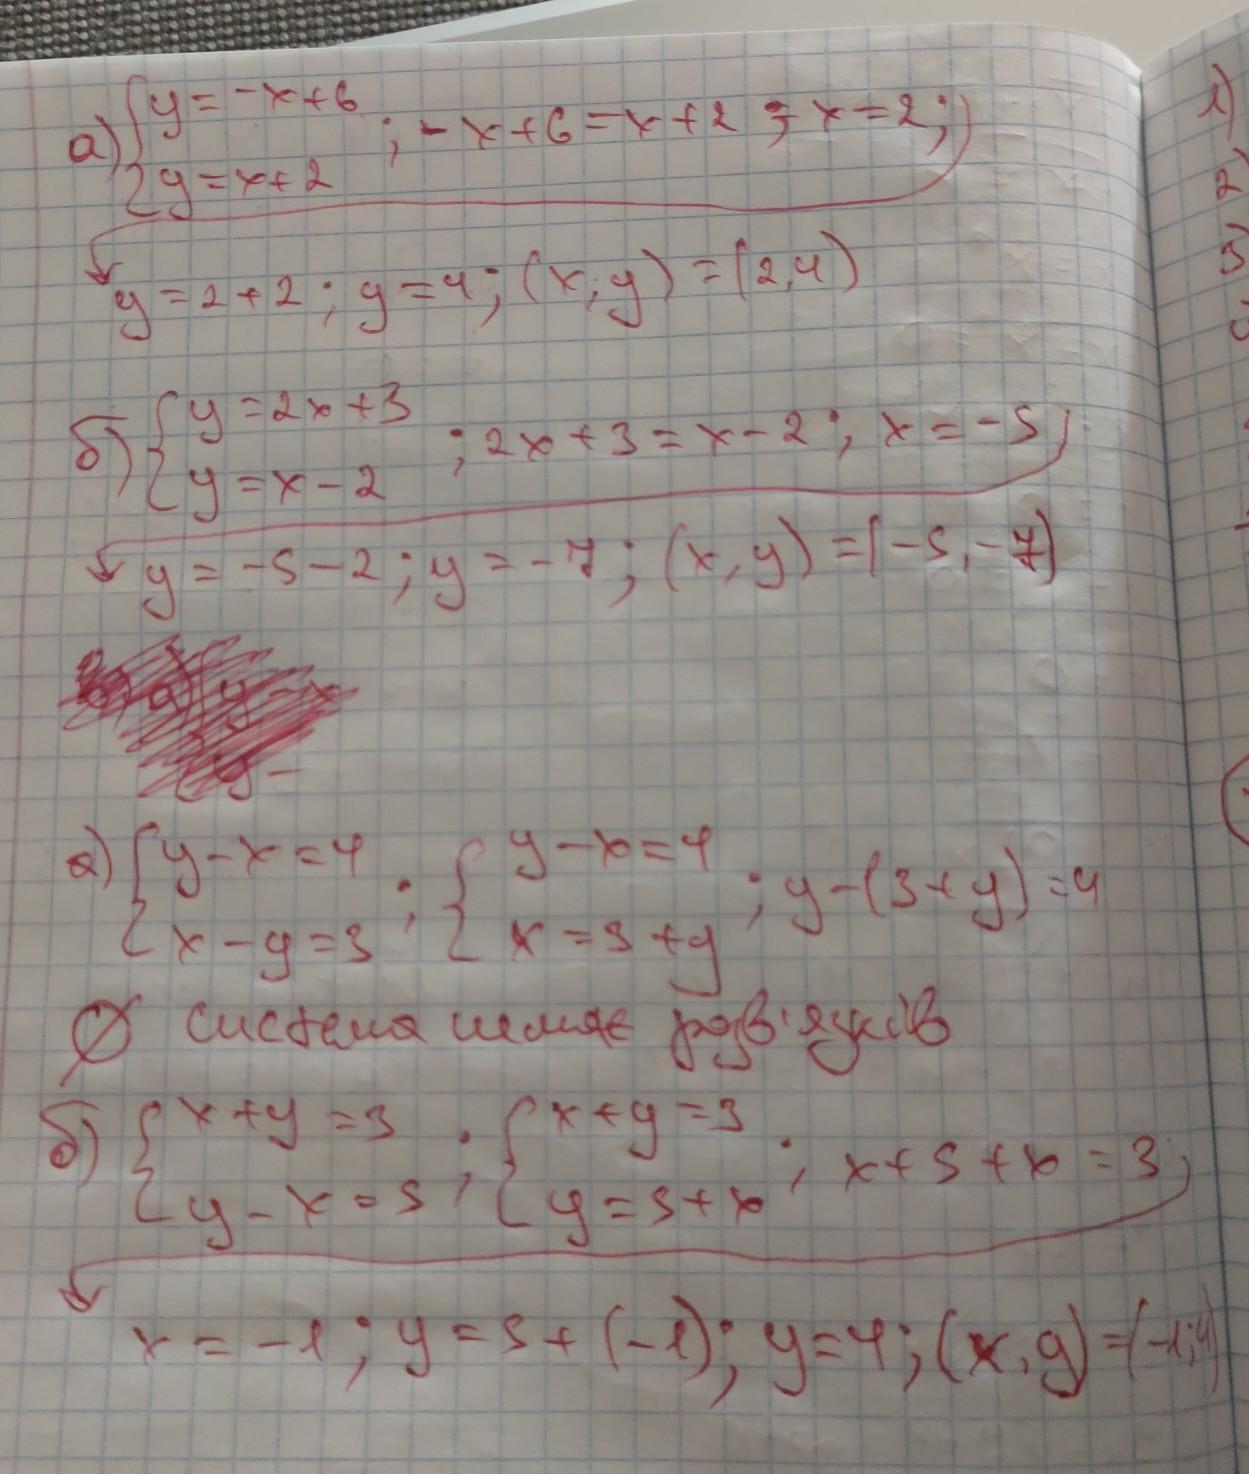 а) { y = -x+6
y = x+2 ; -x+6 = x+2 ; x = 2;
y = 2+2 ; y = 4; (x; y) = (2,4)
б) { y = 2x+3
y = x-2 ; 2x+3 = x-2 ; x = -5;
y = -5-2; y = -7; (x, y) = (-5, -7)
а) { y-x=4 ; { y-x=4 ; y-(3+y)=4
x-y=3 x=3+y
∅ система немає розв'язків
б) { x+y=3 ; { x+y=3 ; x+5+x=3;
y-x=5 y=5+x
x = -1; y = 5+(-1); y = 4; (x, y) = (-1; 4)
1)
2)
3)